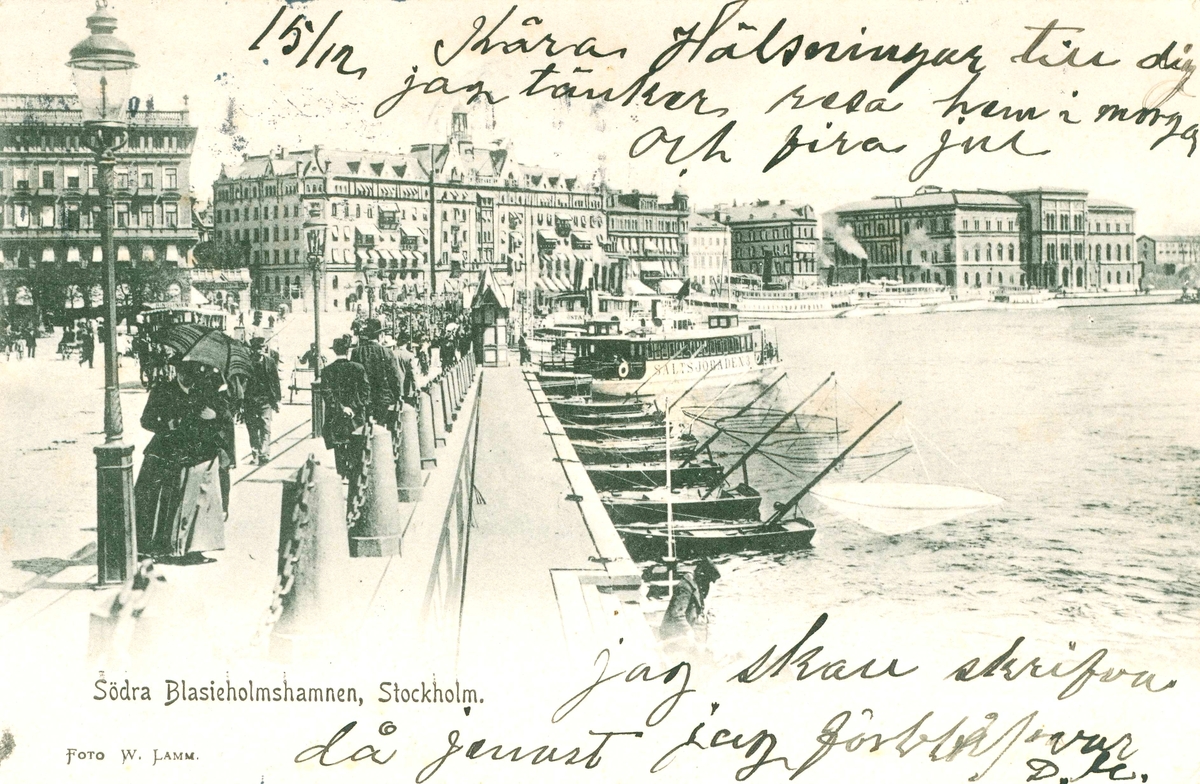 15/12 Kära Hälsningar till dig
jag tänker resa hem i morga
och fira jul
SALTSJÖBADEN
jag skall skrifva
Södra Blasieholmshamnen, Stockholm.
då jag
FOTO W. LAMM.